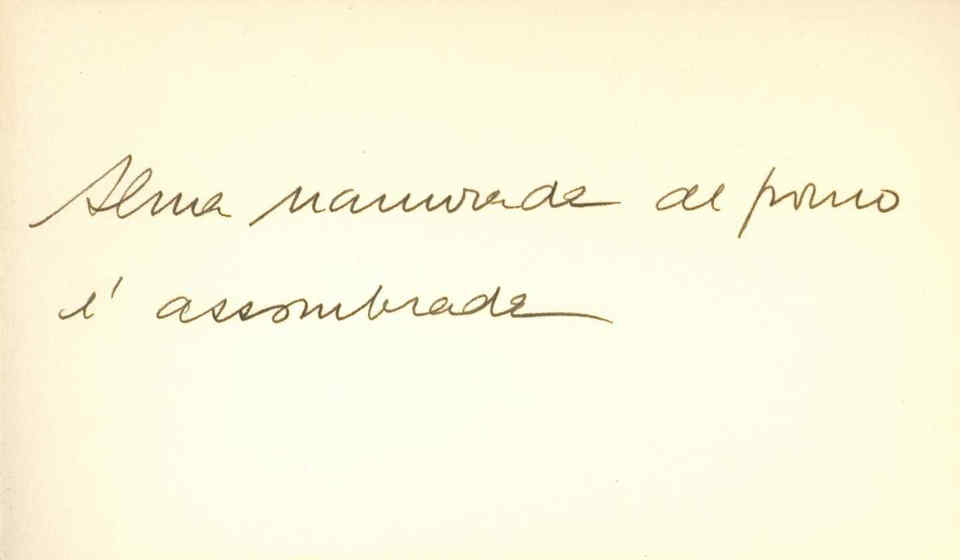 Alma namorada de primo
é assombrada